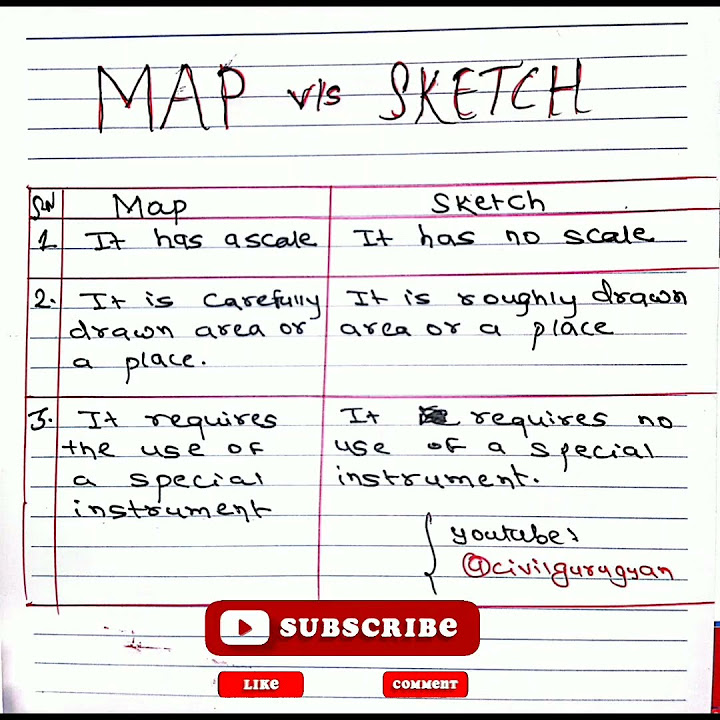 MAP v/s SKETCH
SN Map Sketch
1 It has a scale It has no scale
2. It is carefully It is roughly drawn
drawn area or area or a place
a place.
3. It requires It requires no
the use of use of a special
a special instrument.
instrument
youtube:
@civilgurugyan
SUBSCRIBE
LIKE COMMENT